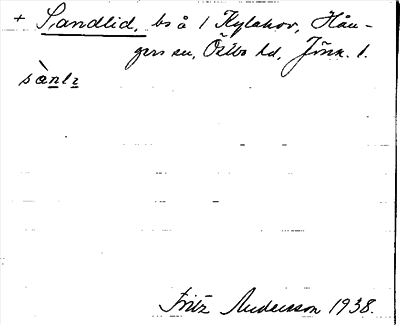 + Sandlid, bs å 1 Kylahov, Hån-
gers sn, Östbo hd, Jönk. l.
sànlɪ
Fritz Andersson 1938.